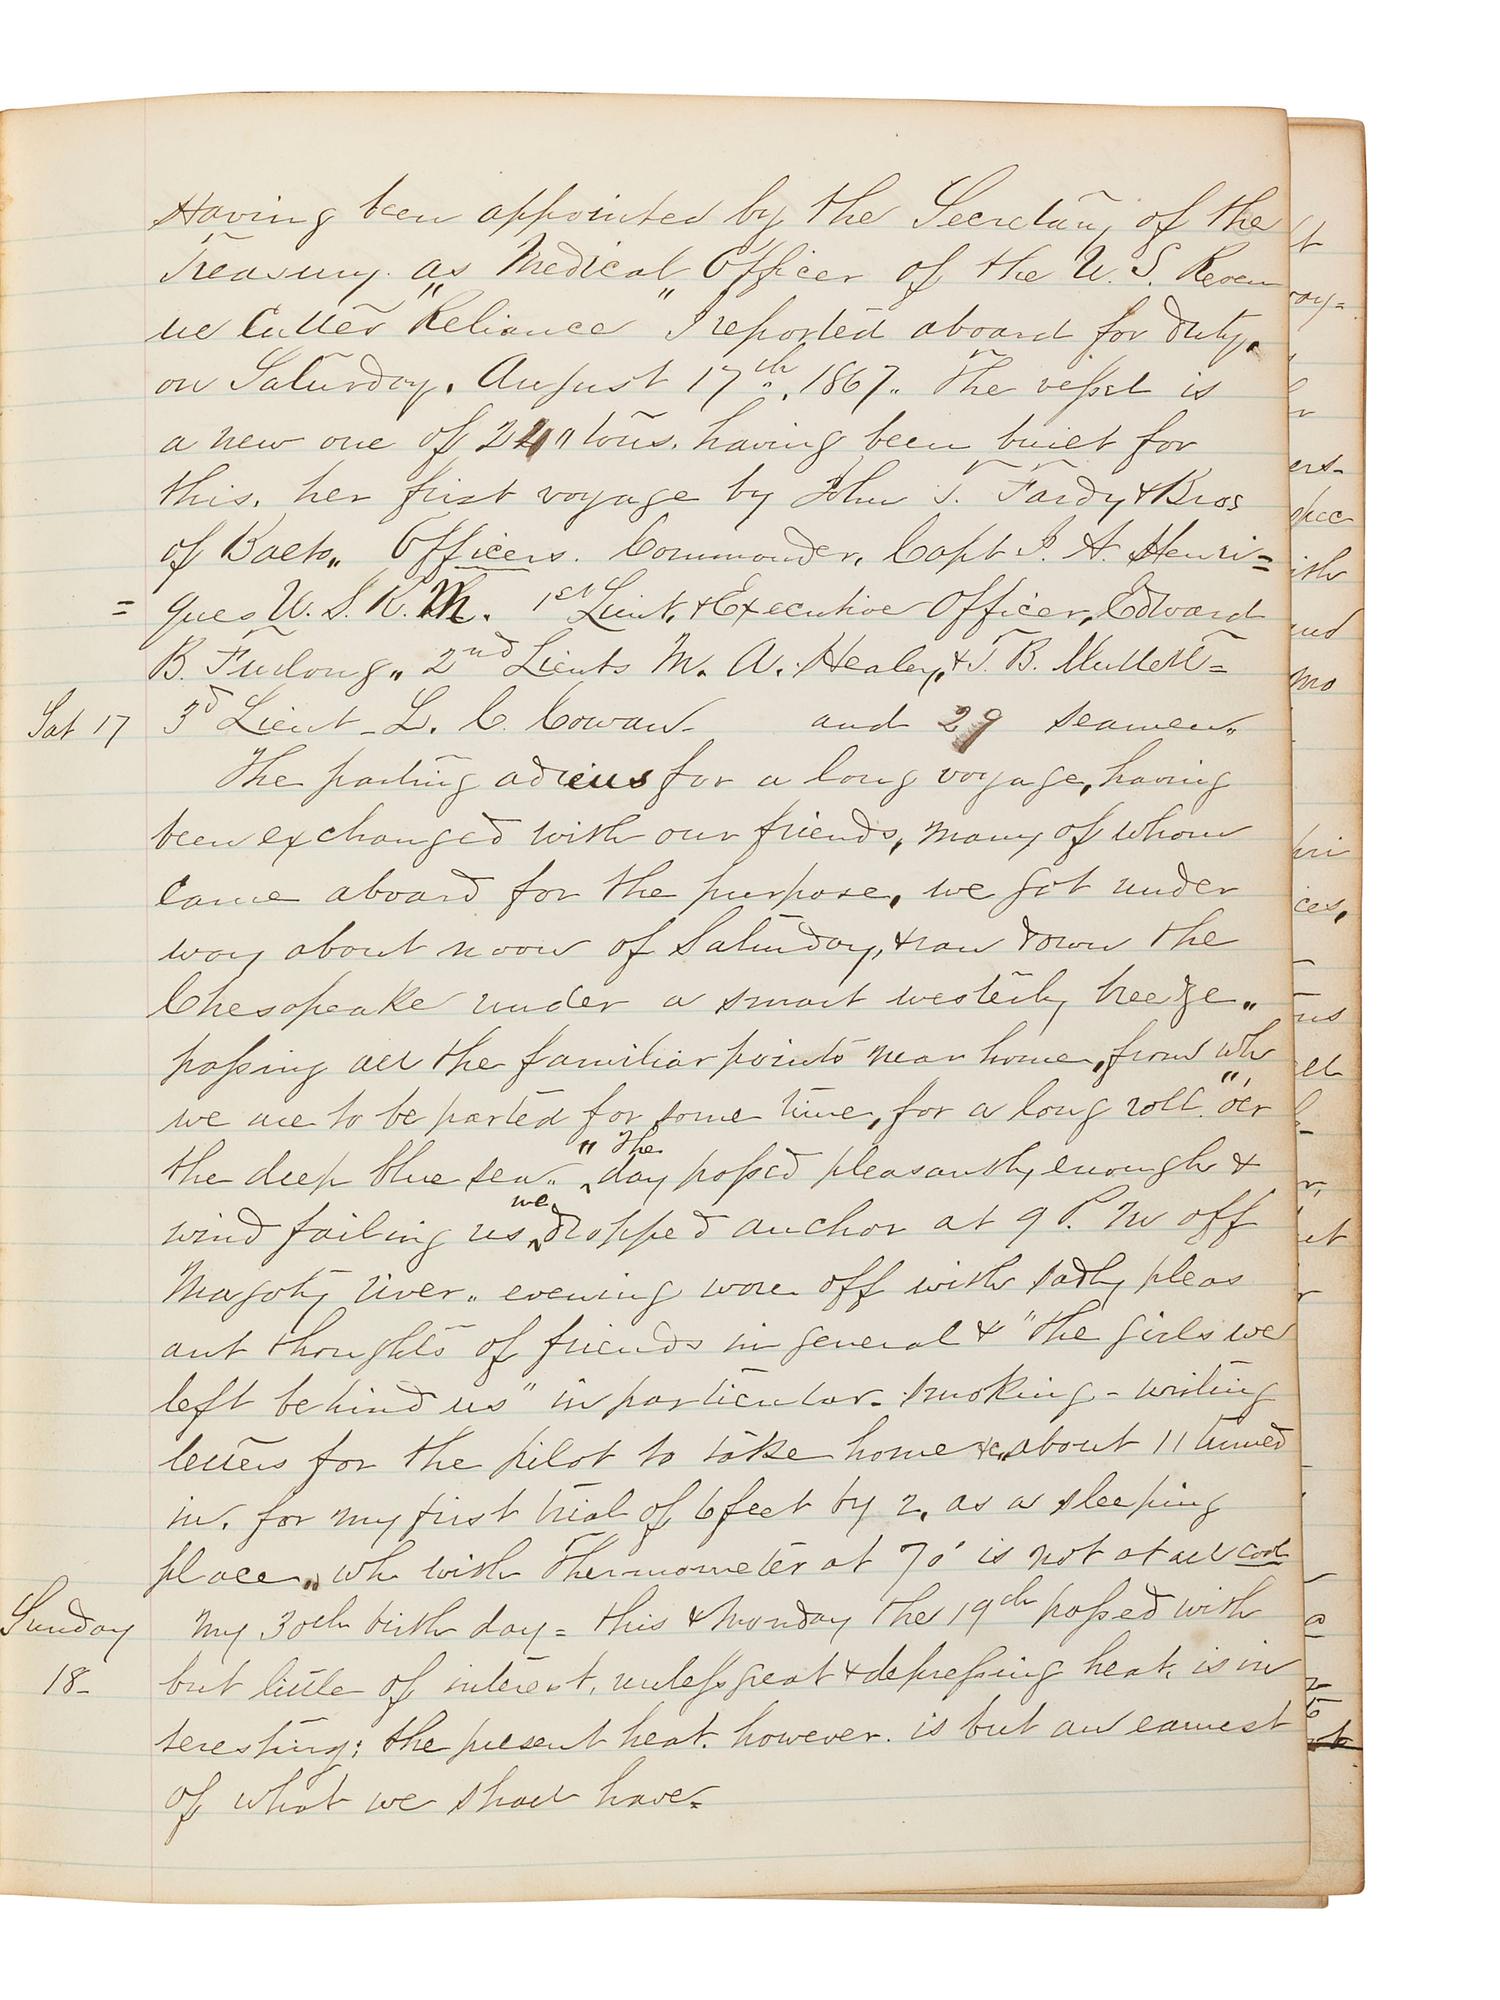 Having been appointed by the Secretary of the
Treasury as Medical Officer of the U. S. Reven
ue Cutter "Reliance" I reported aboard for duty,
on Saturday. August 17th. 1867. The vessel is
a new one of tons. having been built for
this. her first voyage by John T. Fardy & Bros
of Balto,, Officers. Commander. Capt J. A. Henri=
=ques U. S. R. M. 1st Lieut. & Executive Officer, Edward
B. Furlong,, 2nd Lieuts M. A. Healey, & T. B. Mullett=
Sat 17 3d Lieut - L. C. Cowan- and 29 seamen,,
The parting adieus for a long voyage, having
been exchanged with our friends, many of whom
came aboard for the purpose, we got under
way about noon of Saturday, & ran down the
Chesapeake under a smart westerly breeze,,
passing all the familiar points near home, from wh
we are to be parted for some time, for a long roll "o'er
the deep blue sea.." The day passed pleasantly enough &
wind failing us, we dropped anchor at 9 P. M off
Magoty river,, evening wore off with sadly pleas
ant thoughts of friends in general & "the girls we
left behind us" in particular. smoking - writing
letters for the pilot to take home &c,, about 11 turned
in. for my first trial of 6 feet by 2, as a sleeping
place,, wh with Thermometer at is not at all cool
Sunday My 30th birth day = this & Monday the 19th passed with
18- but little of interest, unless great & depressing heat, is in
teresting; the present heat. however. is but an earnest
of what we shall have=